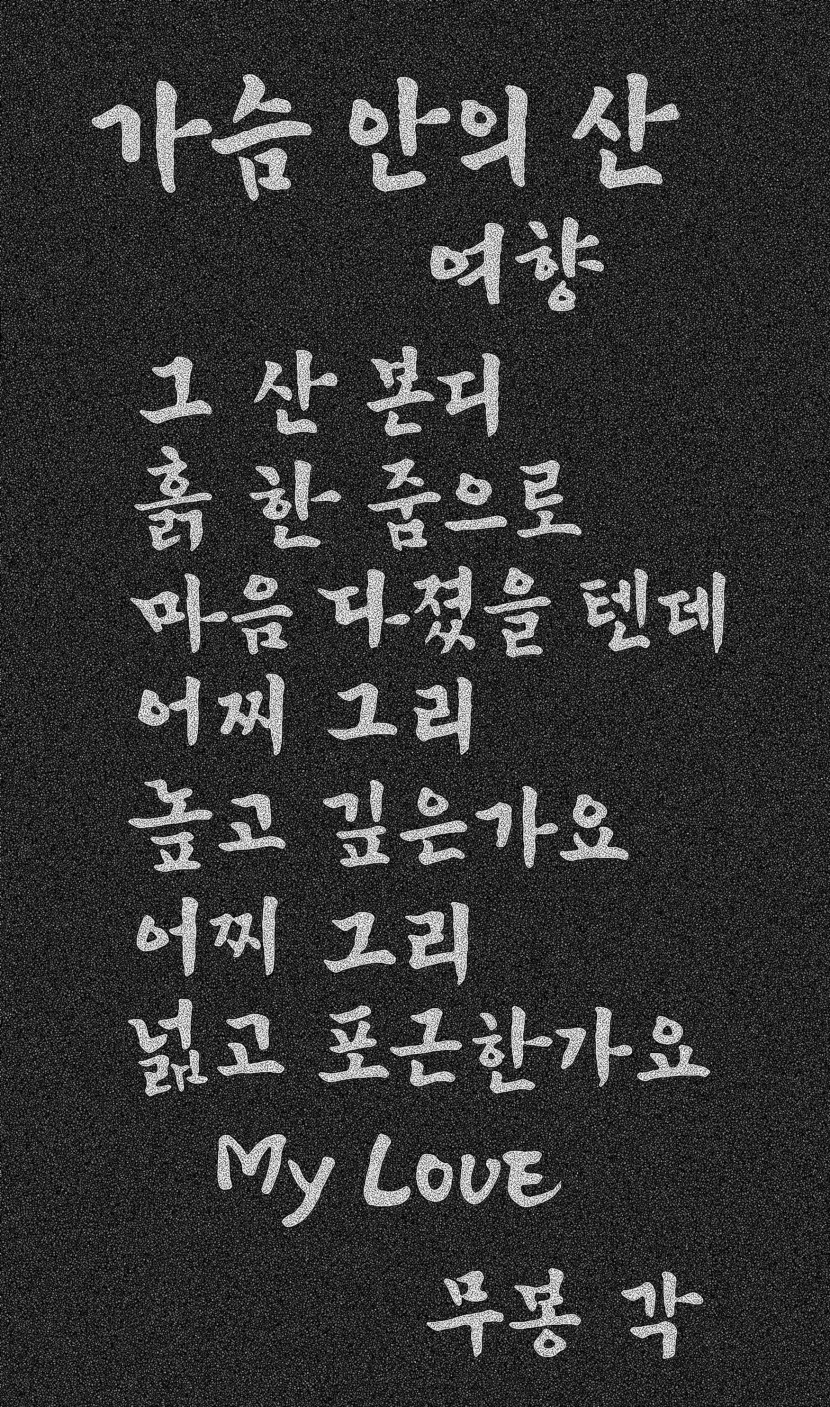 가슴 안의 산
여향
그 산 본디
흙 한 줌으로
마음 다졌을 텐데
어찌 그리
높고 깊은가요
어찌 그리
넓고 포근한가요
My LOVE
무봉 각